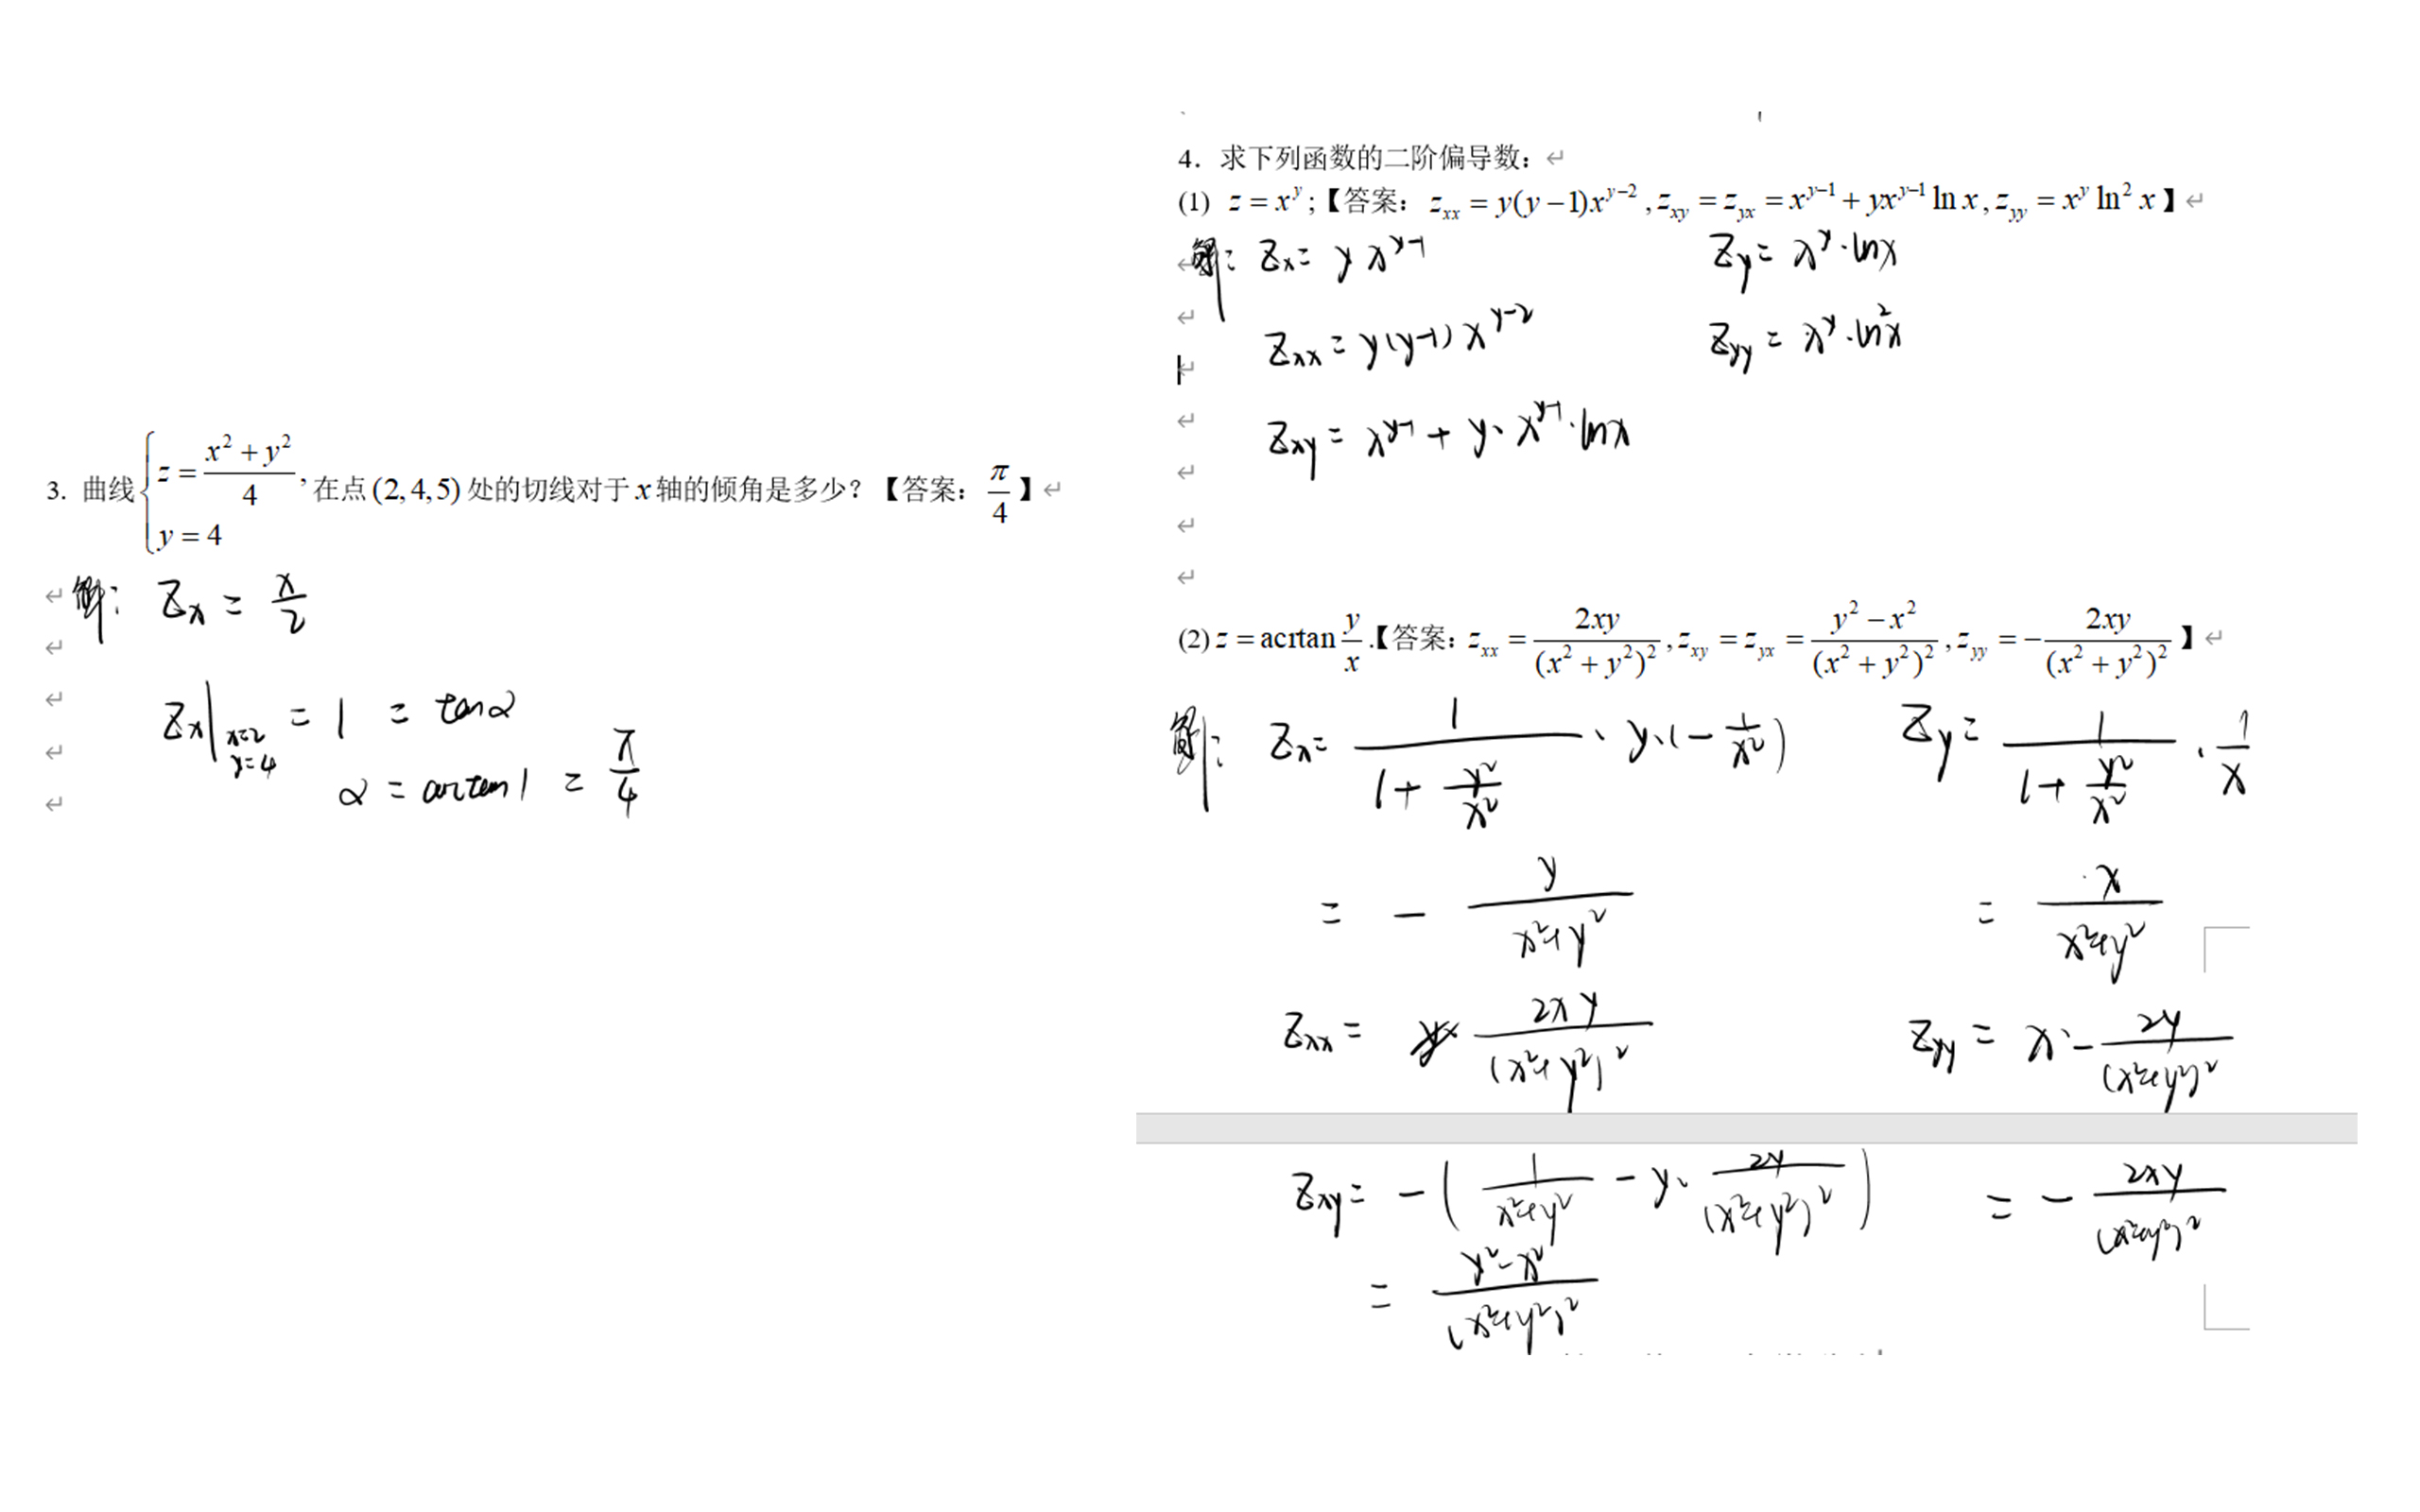 3. 曲线{z = (x² + y²)/4, y = 4 在点(2,4,5)处的切线对于x轴的倾角是多少？【答案：π/4】
解: Zx = x/2
Zx|x=2 y=4 = 1 = tanα
α = arctan1 = π/4
4. 求下列函数的二阶偏导数：
(1) z = x^y ;【答案： z_xx = y(y−1)x^(y−2) , z_xy = z_yx = x^(y−1) + yx^(y−1) ln x , z_yy = x^y ln² x】
解: Zx = y x^(y-1)    Zy = x^y · lnx
Zxx = y(y-1) x^(y-2)    Zyy = x^y · ln²x
Zxy = x^(y-1) + y · x^(y-1) · lnx
(2) z = acrtan y/x .【答案：z_xx = 2xy/(x² + y²)² , z_xy = z_yx = (y² − x²)/(x² + y²)² , z_yy = − 2xy/(x² + y²)²】
解: Zx = 1/(1+ y²/x²) · y·(- 1/x²)    Zy = 1/(1+ y²/x²) · 1/x
= - y/(x²+y²)    = x/(x²+y²)
Zxx = 2xy/(x²+y²)²    Zyy = x·- 2y/(x²+y²)²
Zxy = -( 1/(x²+y²) - y· 2y/(x²+y²)² )    = - 2xy/(x²+y²)²
= (y²-x²)/(x²+y²)²